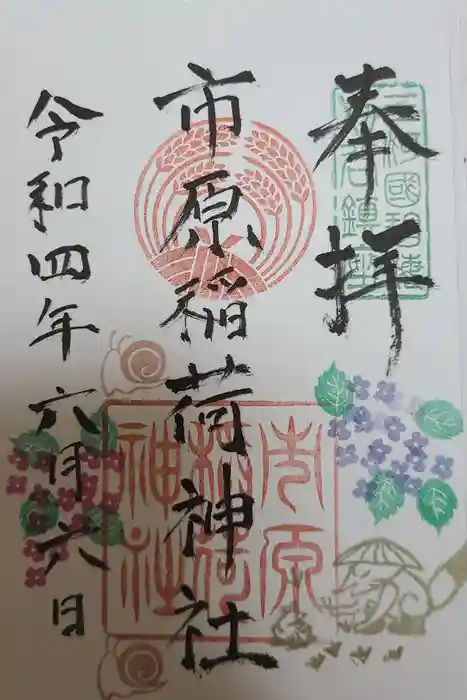 奉拝
市原稲荷神社
令和四年六月六日
市原
稲荷
神社